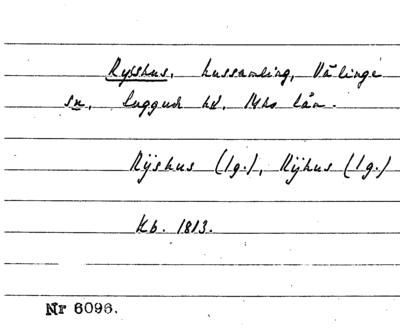 Rysshus, hussamling, Välinge
sn, Luggude hd, Mhs län.
Rÿshus (1g.), Rÿhus (1g.)
Kb. 1813.
Nr 6096.